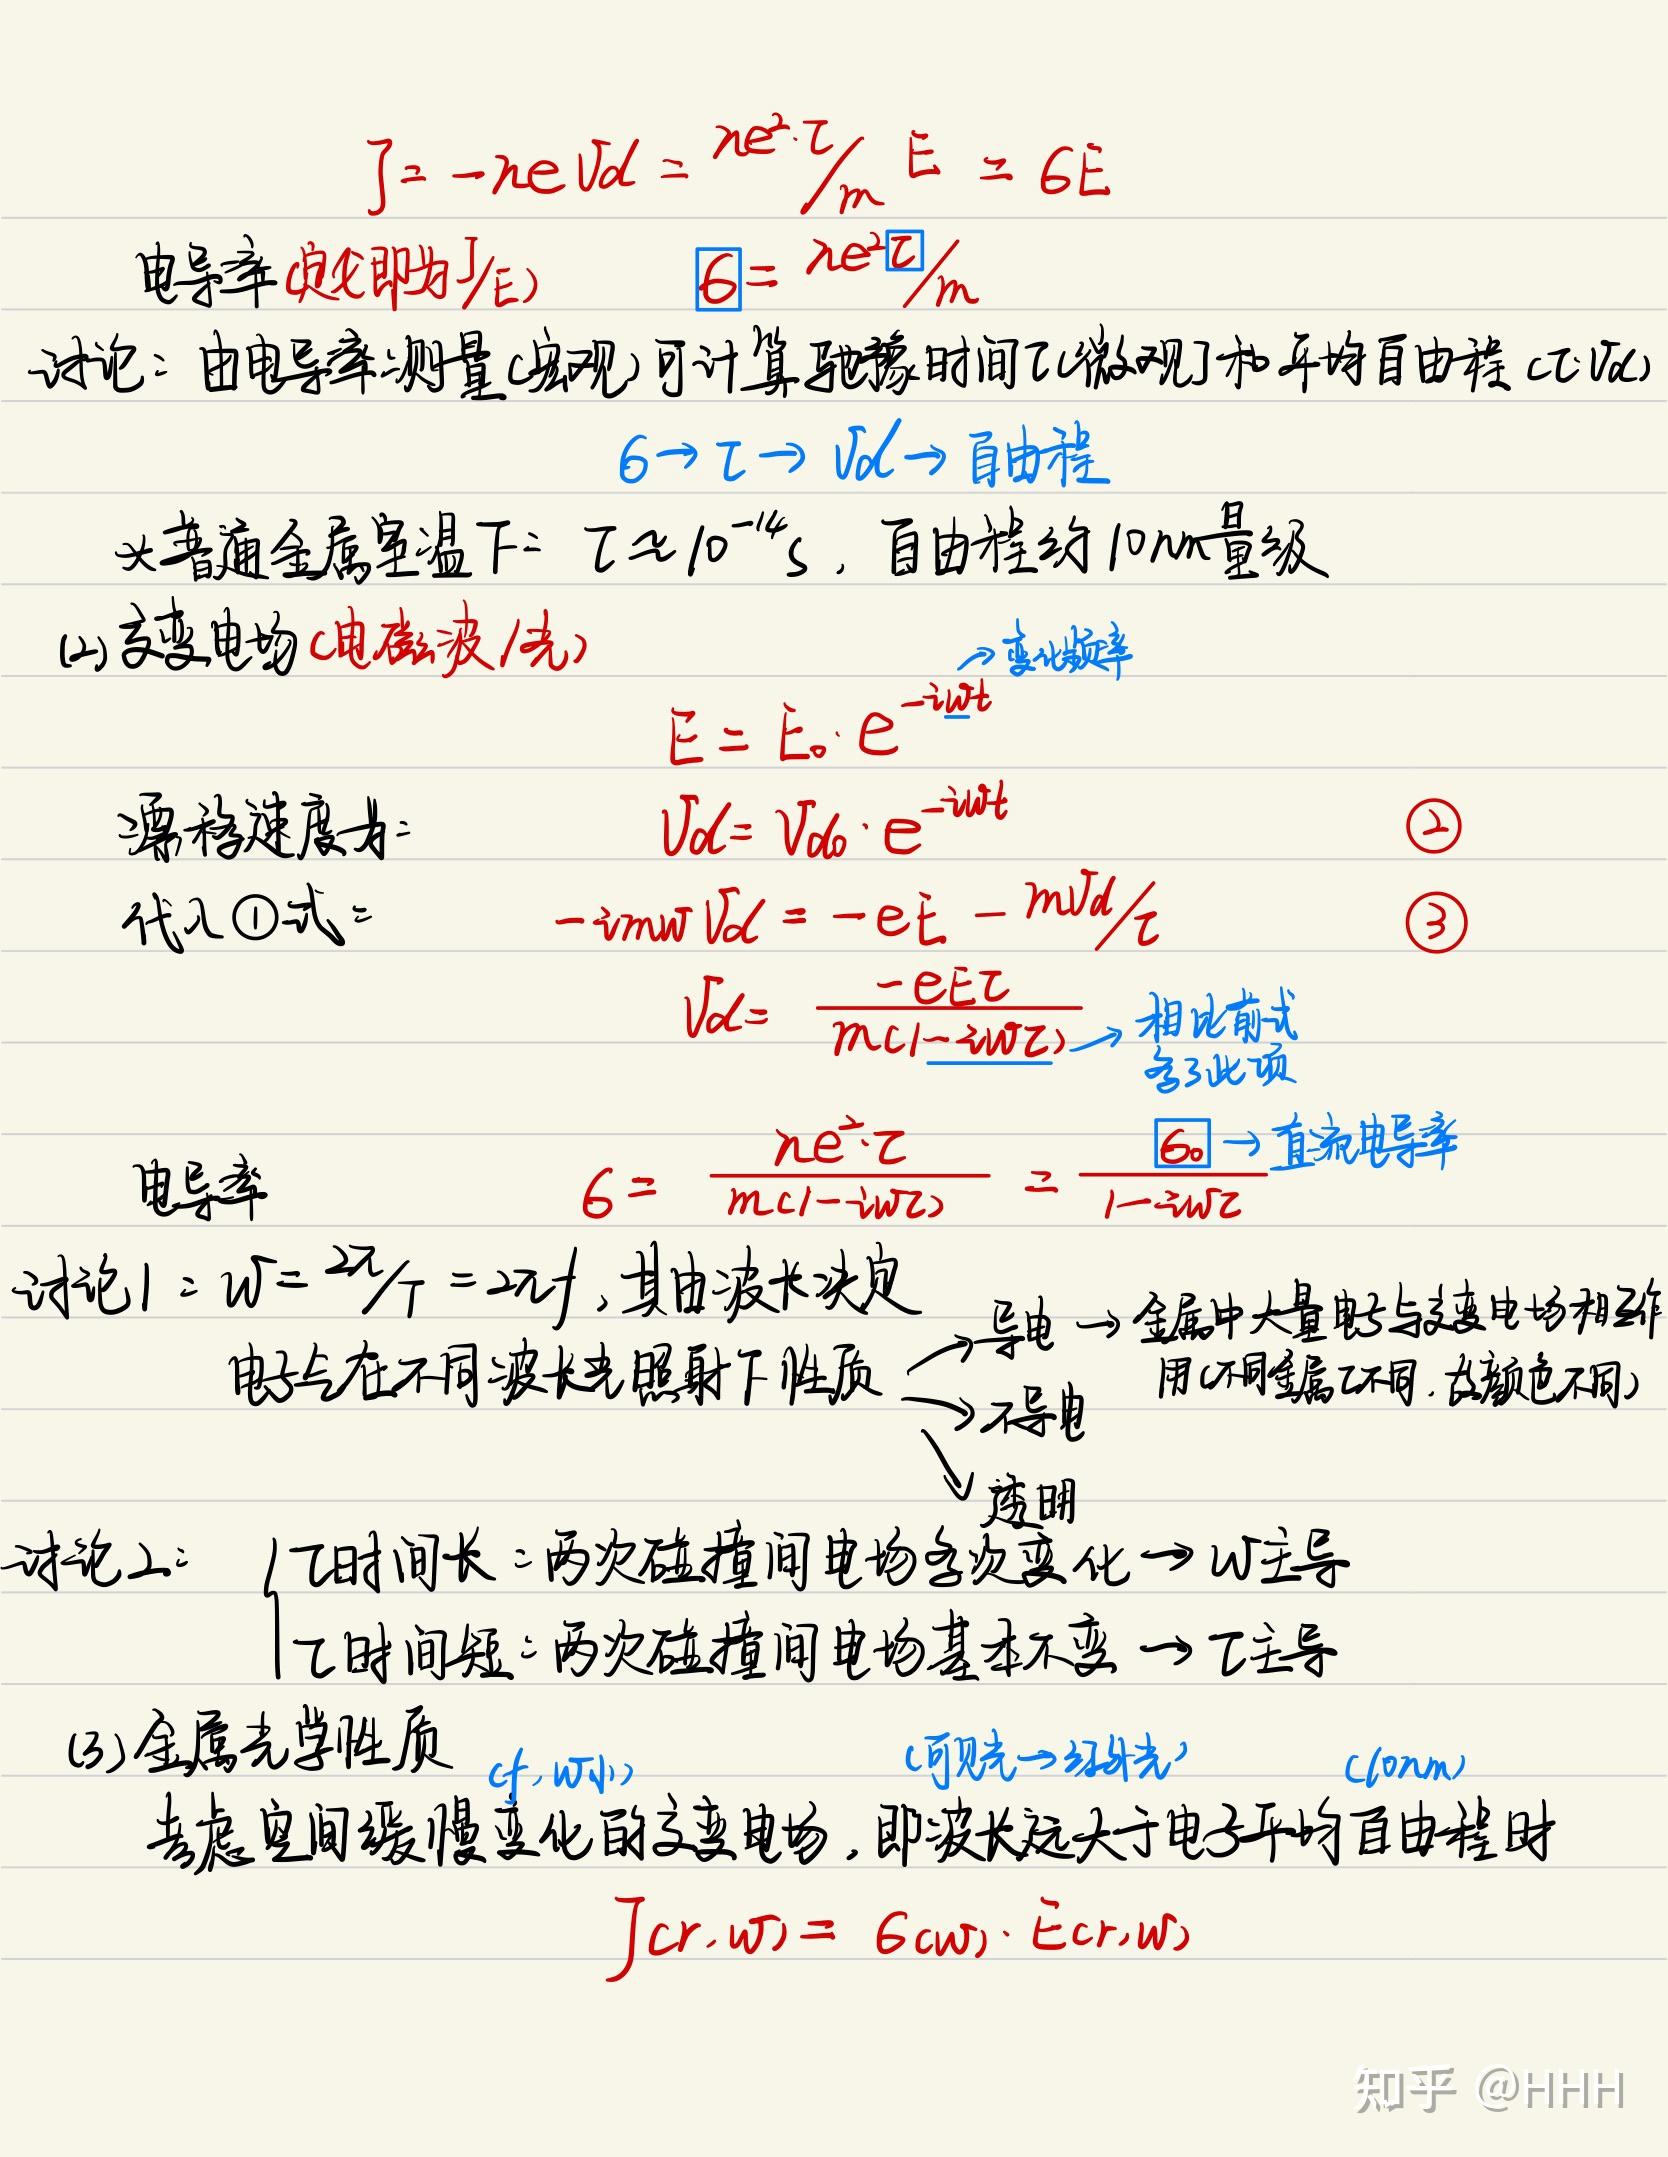 J = -neVd = ne²·τ/m E = σE
电导率(定义即为J/E) σ = ne²τ/m
讨论：由电导率测量(宏观)可计算弛豫时间τ(微观)和平均自由程(τ·Vd)
σ→τ→Vd→自由程
※普通金属室温下：τ≈10⁻¹⁴s，自由程约10nm量级
(2)交变电场(电磁波/光)
→变化频率
E = E₀·e^(-iωt)
漂移速度为： Vd = Vd₀·e^(-iωt) ②
代入①式： -imωVd = -eE - mVd/τ ③
Vd = -eEτ / m(1-iωτ) → 相比前式
多了此项
电导率 σ = ne²·τ / m(1-iωτ) = σ₀ / 1-iωτ → 直流电导率
讨论1：ω = 2π/T = 2πf，其由波长决定
电子气在不同波长光照射下性质 → 导电 → 金属中大量电子与交变电场相互作
用(不同金属τ不同，故颜色不同)
→ 不导电
→ 透明
讨论2： { τ时间长：两次碰撞间电场多次变化→ω主导
τ时间短：两次碰撞间电场基本不变→τ主导
(3)金属光学性质
(f，ω小) (可见光→红外光) (10nm)
考虑空间缓慢变化的交变电场，即波长远大于电子平均自由程时
J(r,ω) = σ(ω)·E(r,ω)
知乎 @HHH